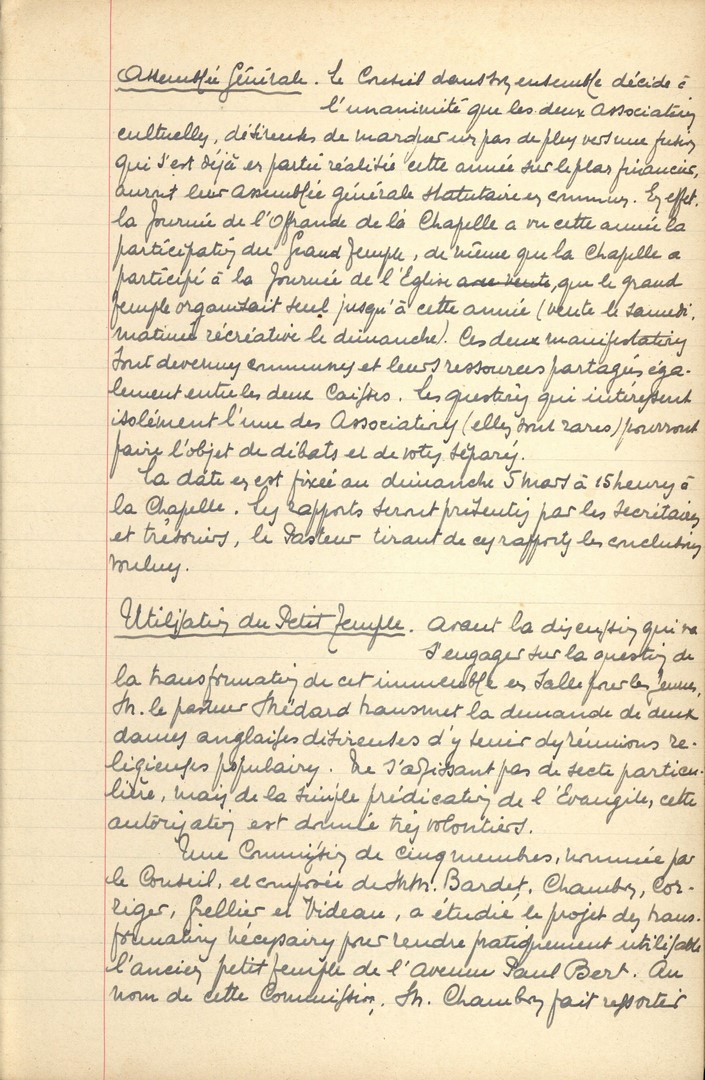 Assemblée Générale. Le Conseil dans son ensemble décide à
l'unanimité que les deux Associations
cultuelles, désireuses de marquer un pas de plus vers une fusion
qui s'est déjà en partie réalisée cette année sur le plan financier,
auront leur Assemblée générale statutaire en commun. En effet,
la Journée de l'Offrande de la Chapelle a vu cette année la
participation du Grand Temple, de même que la Chapelle a
participé à la Journée de l'Eglise avec vente, que le grand
Temple organisait seul jusqu'à cette année (vente le samedi,
matinée récréative le dimanche). Ces deux manifestations
sont devenues communes et leurs ressources partagées éga-
lement entre les deux Caisses. Les questions qui intéressent
isolément l'une des Associations (elles sont rares) pourront
faire l'objet de débats et de votes séparés.
La date en est fixée au dimanche 5 mars à 15 heures à
la Chapelle. Les rapports seront présentés par les Secrétaires
et trésoriers, le Pasteur tirant de ces rapports les conclusions
voulues.
Utilisation du Petit Temple. Avant la discussion qui va
s'engager sur la question de
la transformation de cet immeuble en Salle pour les Jeunes,
M. le pasteur Médard transmet la demande de deux
dames anglaises désireuses d'y tenir des réunions re-
ligieuses populaires. Ne s'agissant pas de secte particu-
lière, mais de la simple prédication de l'Evangile, cette
autorisation est donnée très volontiers.
Une Commission de cinq membres, nommée par
le Conseil, et composée de MM. Bardet, Chambon, Cor-
riger, Grellier et Videau, a étudié le projet des trans-
formations nécessaires pour rendre pratiquement utilisable
l'ancien petit temple de l'avenue Paul Bert. Au
nom de cette Commission, M. Chambon fait ressortir